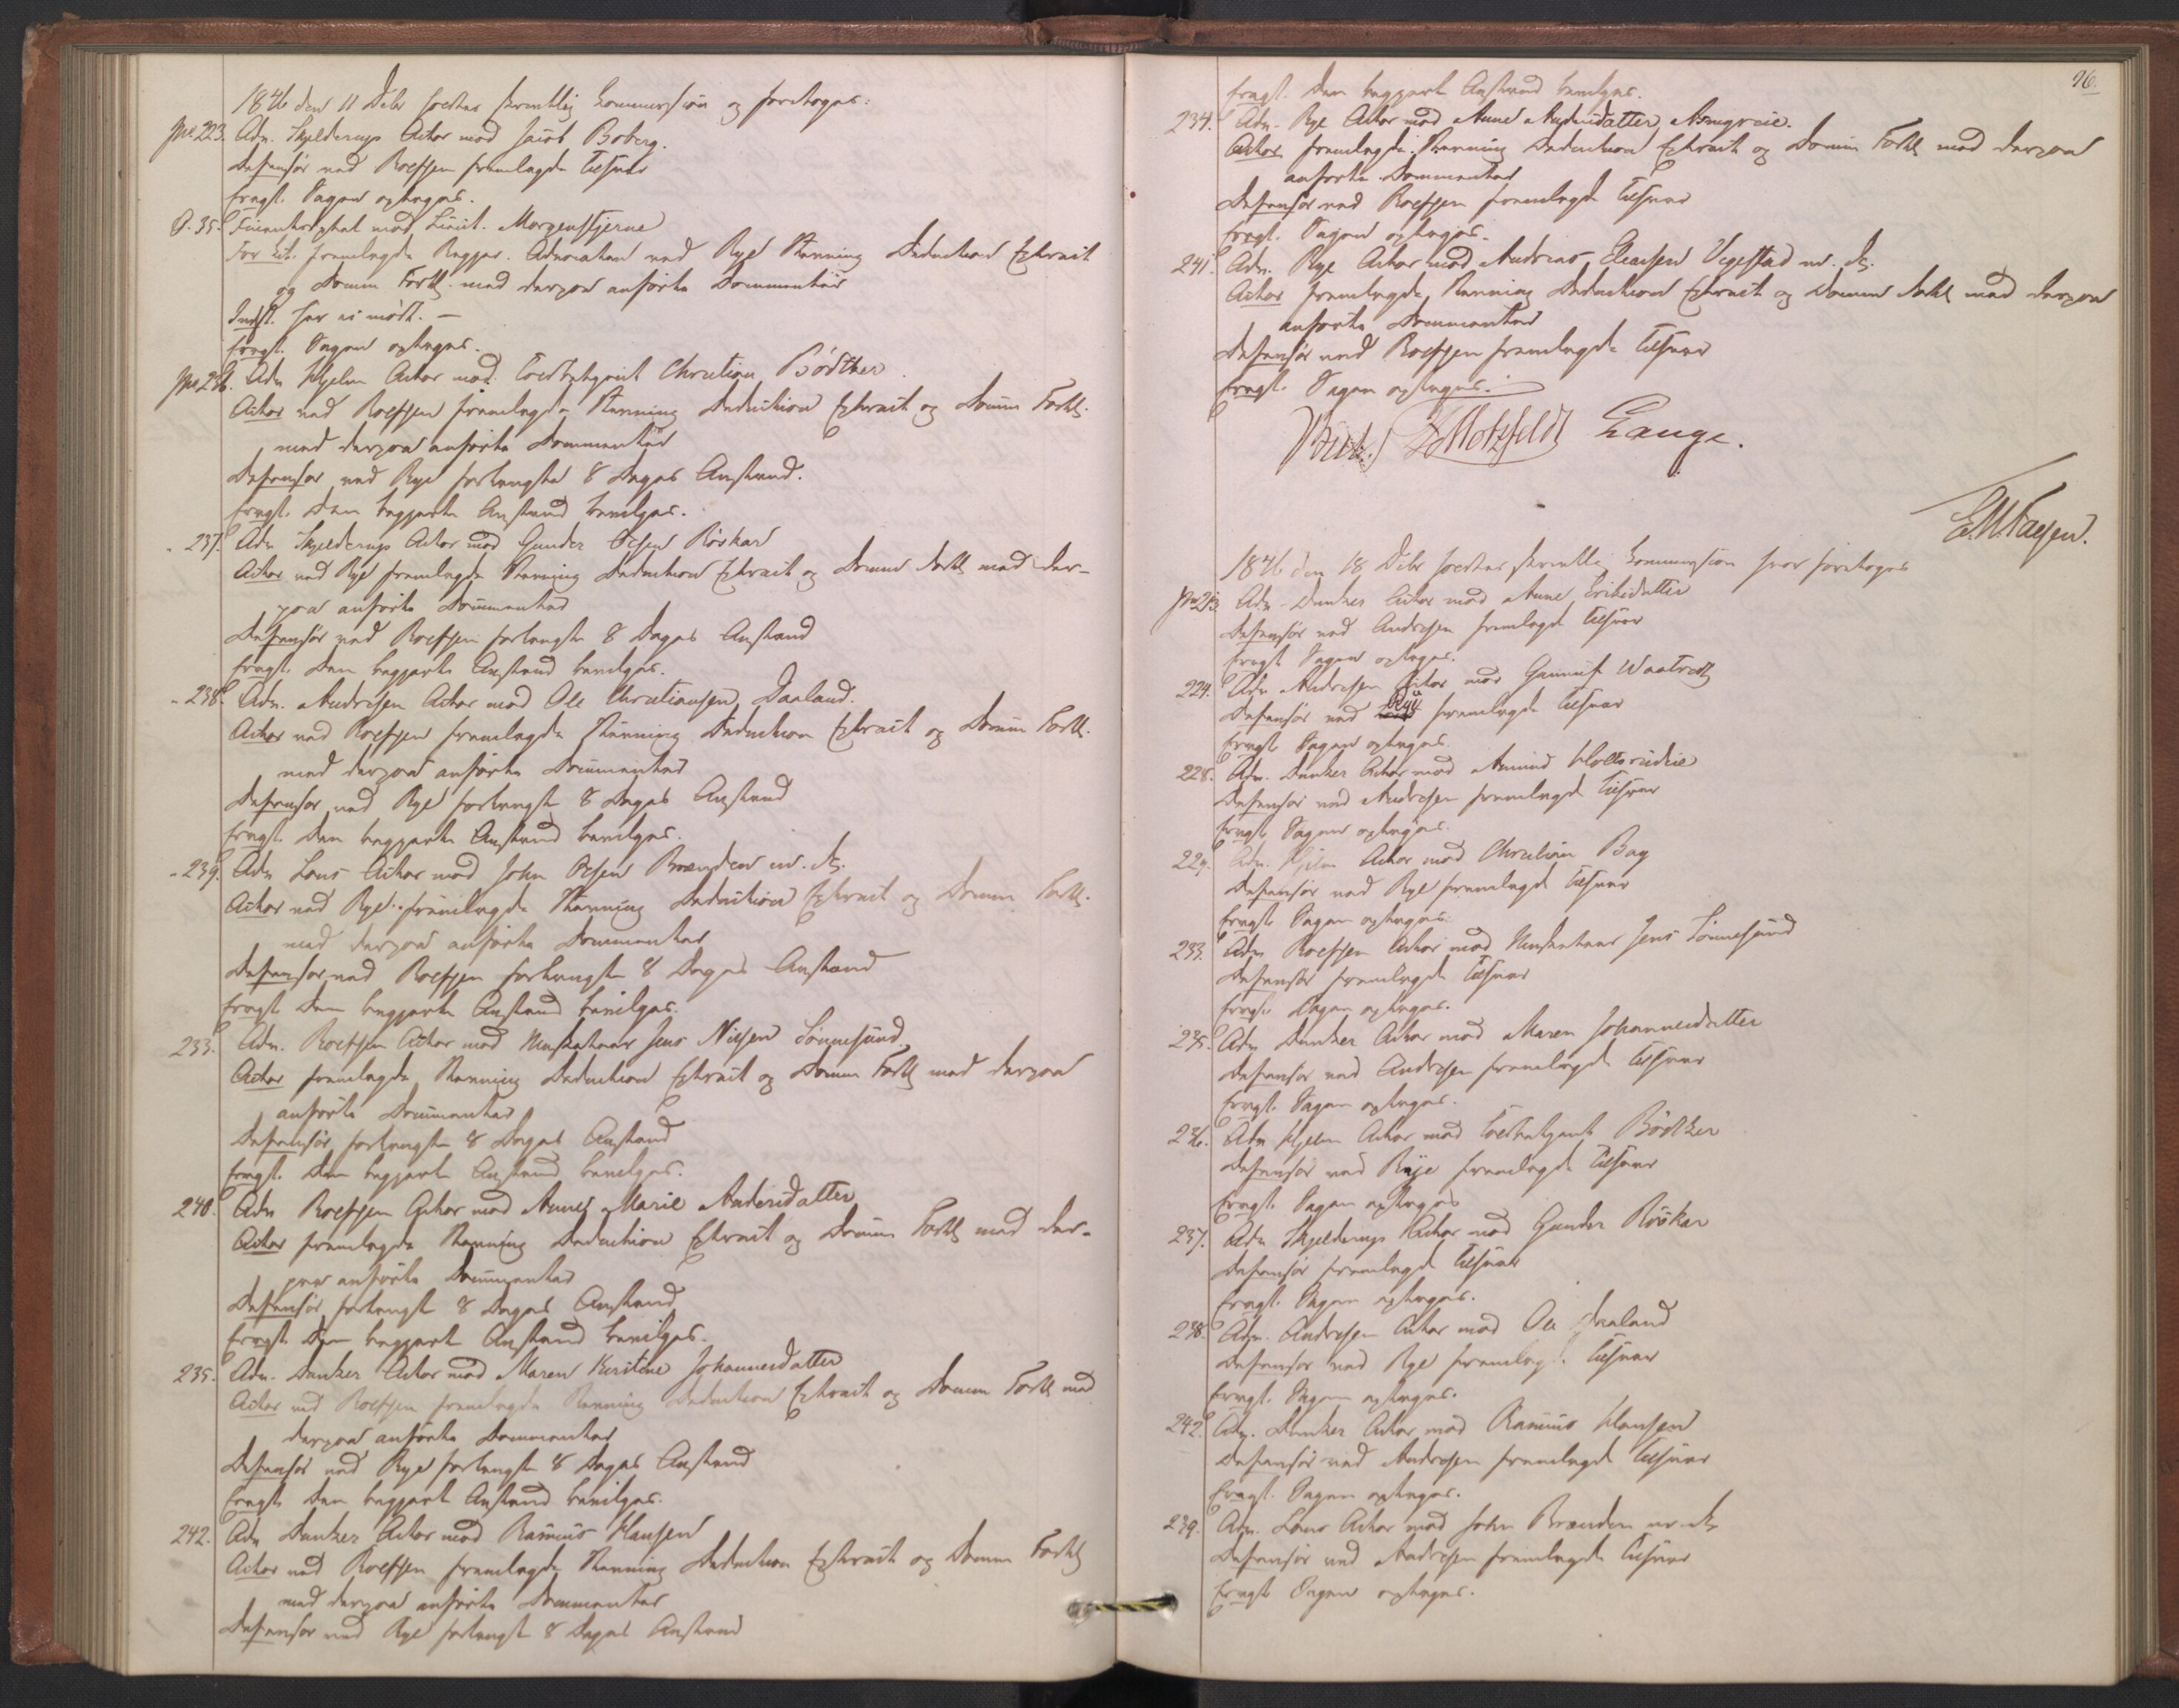 1846 den 11 Dcbr holdtes skriftlig Commission og foretoges:
pr 223. Adv. Hjelderup Actor mod Jacob Boberg.
Defensor ved Rolfsen fremlagde Tilsvar
Eragt. Sagen optages.
P. 35. mod Lieut. Morgenstjerne
For Cit. fremlagde Regjer. Advocaten ved Rye Stevning Deduction Extract
og Domme Fortl. med derpaa anførte Documenter
Indst. har ei mødt. —
Eragt. Sagen optages.
pr 236. Adv Hjelm Actor mod Christian Bödtker
Actor ved Rolfsen fremlagde Stevning Deduction Extract og Domme Fortl.
med derpaa anførte Documenter
Defensor ved Rye forlangte 8 Dages Anstand.
Eragt. Den begjærte Anstand bevilges.
- 237. Adv Hjelderup Actor mod Gunder Olsen Röskar
Actor ved Rye fremlagde Stevning Deduction Extract og Domme Fortl med der-
paa anførte Documenter
Defensor ved Rolfsen forlangte 8 Dages Anstand
Eragt. Den begjærte Anstand bevilges.
- 238. Adv. Andresen Actor mod Ole Christiansen Daaland.
Actor ved Rolfsen fremlagde Stevning Deduction Extract og Domme Fortl.
med derpaa anførte Documenter
Defensor ved Rye forlangte 8 Dages Anstand
Eragt. Den begjærte Anstand bevilges.
- 239. Adv Lous Actor mod John Olsen Brænden m. fl.
Actor ved Rye fremlagde Stevning Deduction Extract og Domme Fortl.
med derpaa anførte Documenter
Defensor ved Rolfsen forlangte 8 Dages Anstand
Eragt. Den begjærte Anstand bevilges.
233. Adv. Rolfsen Actor mod Musketeer Jens Nilsen Sönnesund.
Actor fremlagde Stevning Deduction Extract og Domme Fortl med derpaa
anførte Documenter
Defensor forlangte 8 Dages Anstand
Eragt. Den begjærte Anstand bevilges.
240. Adv Rolfsen Actor mod Anne Marie Andersdatter
Actor fremlagde Stevning Deduction Extract og Domme Fortl med der-
paa anførte Documenter
Defensor forlangte 8 Dages Anstand
Eragt. Den begjærte Anstand bevilges.
235. Adv. Dunker Actor mod Maren Kirstine Johannesdatter
Actor ved Rolfsen fremlagde Stevning Deduction Extract og Domme Fortl med
derpaa anførte Documenter
Defensor ved Rye forlangte 8 Dages Anstand
Eragt. Den begjærte Anstand bevilges.
242. Adv Dunker Actor mod Rasmus Hansen
Actor ved Rolfsen fremlagde Stevning Deduction Extract og Domme Fortl
med derpaa anførte Documenter
Defensor ved Rye forlangte 8 Dages Anstand
76.
Eragt. Den begjærte Anstand bevilges.
234. Adv. Rye Actor mod Anne Andersdatter
Actor fremlagde Stevning Deduction Extract og Domme Fortl med derpaa
anførte Documenter
Defensor ved Rolfsen fremlagde Tilsvar
Eragt. Sagen optages.
241. Adv. Rye Actor mod Andreas Eliassen Vegestad m. fl.
Actor fremlagde Stevning Deduction Extract og Domme Fortl med derpaa
anførte Documenter
Defensor ved Rolfsen fremlagde Tilsvar
Eragt. Sagen optages.
Motzfeldt Lange.
1846 den 18 Dcbr holdtes skriftlig Commission hvor foretoges
pr 213 Adv. Dunker Actor mod Anne Eriksdatter
Defensor ved Andresen fremlagde Tilsvar
Eragt. Sagen optages.
224. Adv Andresen Actor mod
Defensor ved Rye fremlagde Tilsvar
Eragt. Sagen optages.
228. Adv. Dunker Actor mod Amund
Defensor ved Andresen fremlagde Tilsvar
Eragt. Sagen optages.
229. Adv. Hjelm Actor mod Christian Bay
Defensor ved Rye fremlagde Tilsvar
Eragt. Sagen optages.
233. Adv Rolfsen Actor mod Musketeer Jens Sönnesund
Defensor fremlagde Tilsvar
Eragt. Sagen optages.
235. Adv Dunker Actor mod Maren Johannesdatter
Defensor ved Andresen fremlagde Tilsvar
Eragt. Sagen optages.
236. Adv Hjelm Actor mod Bödtker
Defensor ved Rye fremlagde Tilsvar
Eragt. Sagen optages
237. Adv Hjelderup Actor mod Gunder Röskar
Defensor fremlagde Tilsvar
Eragt. Sagen optages.
238. Adv. Andresen Actor mod Ole Daaland
Defensor ved Rye fremlagde Tilsvar
Eragt. Sagen optages.
242. Adv. Dunker Actor mod Rasmus Hansen
Defensor ved Andresen fremlagde Tilsvar
Eragt. Sagen optages.
239. Adv. Lous Actor mod John Brænden m. fl
Defensor ved Andresen fremlagde Tilsvar
Eragt. Sagen optages.